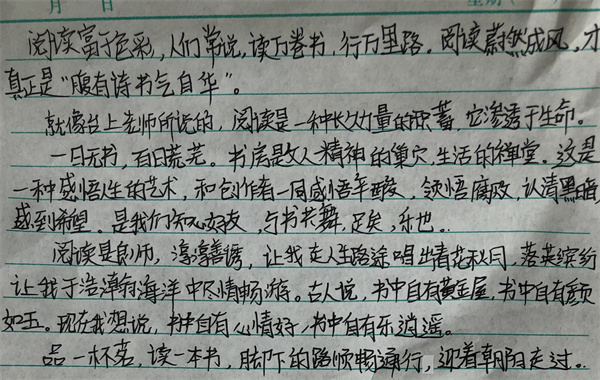 月 日 星期
阅读富于色彩，人们常说，读万卷书，行万里路。阅读蔚然成风，才
真正是“腹有诗书气自华”。
就像台上老师所说的，阅读是一种长久力量的积蓄，它渗透于生命。
一日无书，百日荒芜。书房是文人精神的巢穴，生活的禅堂。这是
一种感悟人生的艺术，和创作者一同感悟辛酸，领悟腐败，认清黑暗，
感到希望。是我们知心好友，与书共舞，足矣，乐也。
阅读是良师，淳淳善诱，让我走人生路途唱出青花秋同，落英缤纷
让我于浩瀚海洋中尽情畅游。古人说，书中自有黄金屋，书中自有颜
如玉。现在我想说，书中自有心情好，书中自有乐逍遥。
品一杯茗，读一本书，脚下的路顺畅通行，迎着朝阳走过。